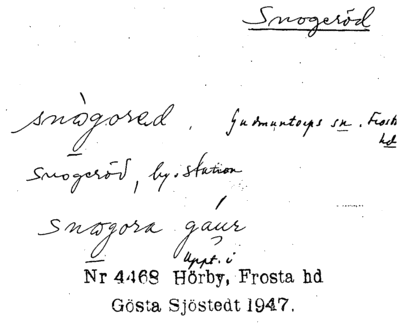 Snogeröd
snògored. Gudmuntorps sn. Frosta hd
Snogeröd, by o. station
snogora gáur
Uppt. i
Nr 4468 Hörby, Frosta hd
Gösta Sjöstedt 1947.